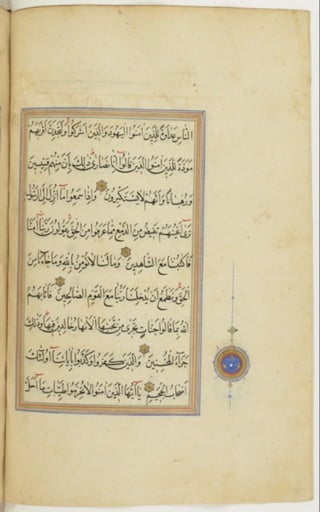 الناس عداوة للذين آمنوا اليهود والذين أشركوا ولتجدن أقربهم
مودة للذين آمنوا الذين قالوا إنا نصارى ذلك بأن منهم قسيسين
ورهبانا وأنهم لا يستكبرون وإذا سمعوا ما أنزل إلى الرسول
ترى أعينهم تفيض من الدمع مما عرفوا من الحق يقولون ربنا آمنا
فاكتبنا مع الشاهدين وما لنا لا نؤمن بالله وما جاءنا من
الحق ونطمع أن يدخلنا ربنا مع القوم الصالحين فأثابهم
الله بما قالوا جنات تجري من تحتها الأنهار خالدين فيها وذلك
جزاء المحسنين والذين كفروا وكذبوا بآياتنا أولئك
أصحاب الجحيم يا أيها الذين آمنوا لا تحرموا طيبات ما أحل